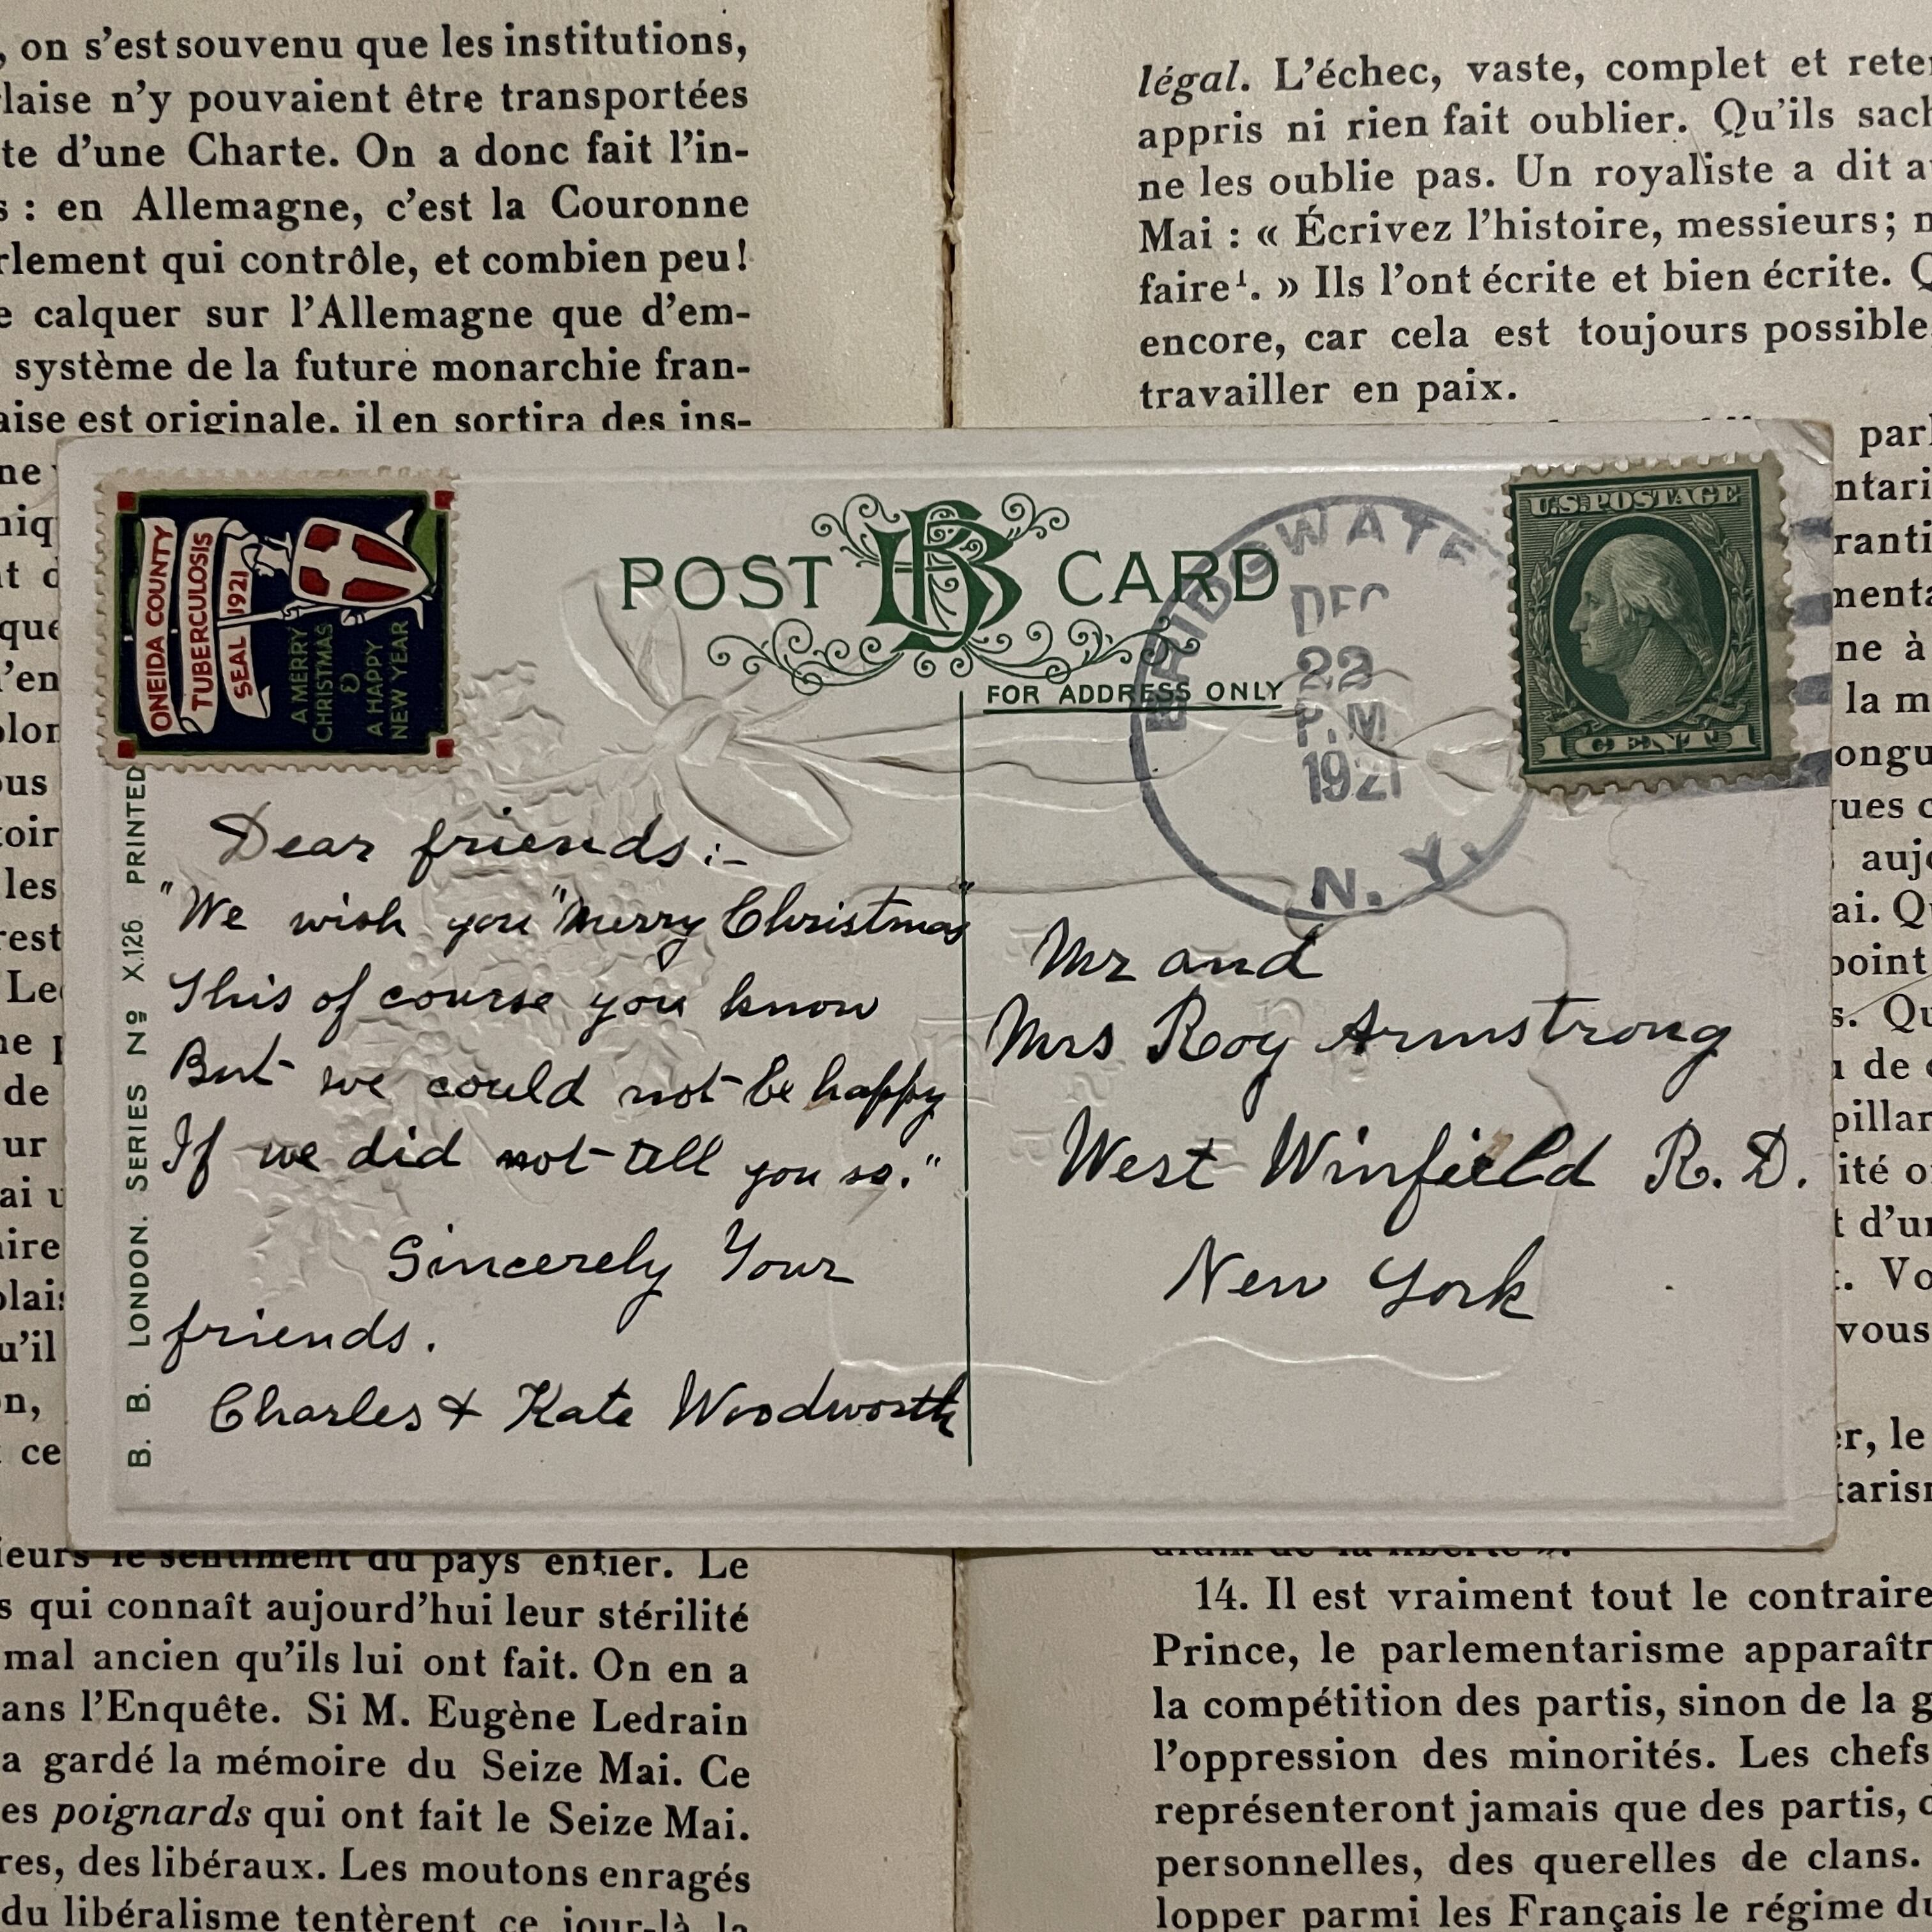 , on s'est souvenu que les institutions,
laise n'y pouvaient être transportées
te d'une Charte. On a donc fait l'in-
s : en Allemagne, c'est la Couronne
rlement qui contrôle, et combien peu!
e calquer sur l'Allemagne que d'em-
système de la future monarchie fran-
aise est originale, il en sortira des ins-
légal. L'échec, vaste, complet et rete
appris ni rien fait oublier. Qu'ils sach
ne les oublie pas. Un royaliste a dit a
Mai : « Écrivez l'histoire, messieurs; n
faire¹. » Ils l'ont écrite et bien écrite. Q
encore, car cela est toujours possible
travailler en paix.
ONEIDA COUNTY
TUBERCULOSIS
SEAL 1921
A MERRY
CHRISTMAS
&
A HAPPY
NEW YEAR
POST BB CARD
FOR ADDRESS ONLY
BRIDGWATE
DEC
22
P.M
1921
N. Y.
U.S. POSTAGE
1 CENT 1
B. B. LONDON. SERIES Nº X.126 PRINTED
Dear friends:-
"We wish you "Merry Christmas"
This of course you know
But we could not be happy
If we did not tell you so."
Sincerely Your
friends.
Charles & Kate Woodworth
Mr and
Mrs Roy Armstrong
West Winfield R. D.
New York
ieurs le sentiment du pays entier. Le
s qui connaît aujourd'hui leur stérilité
mal ancien qu'ils lui ont fait. On en a
ans l'Enquête. Si M. Eugène Ledrain
a gardé la mémoire du Seize Mai. Ce
es poignards qui ont fait le Seize Mai.
res, des libéraux. Les moutons enragés
du libéralisme tentèrent ce jour-là la
14. Il est vraiment tout le contraire
Prince, le parlementarisme apparaîtr
la compétition des partis, sinon de la g
l'oppression des minorités. Les chefs
représenteront jamais que des partis, c
personnelles, des querelles de clans.
lopper parmi les Français le régime d